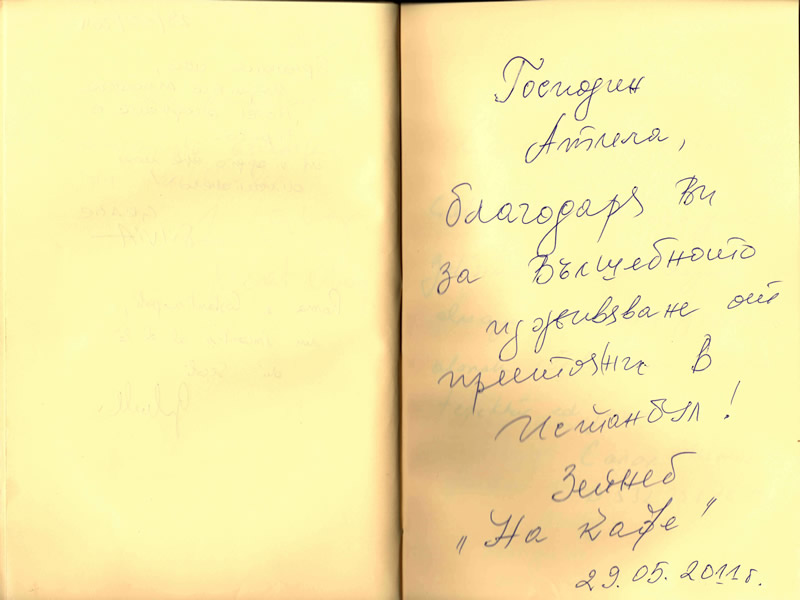 Господин
Атила,
благодаря Ви
за Вълшебното
изживяване от
престоя ни в
Истанбул!
Зейнеб
„На кафе"
29.05.2011г.